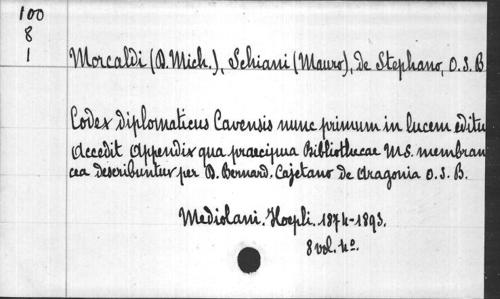 100
8
1
Morcaldi (D. Mich.), Schiani (Mauro), de Stephano, O. S. B
Codex diplomaticus Cavensis nunc primum in lucem editu
Accedit Appendix qua praecipua Bibliothecae MS. membran
cea describuntur per D. Bernard. Cajetano de Aragonia O. S. B.
Mediolani. Hoepli. 1874-1893.
8 vol. 4º.